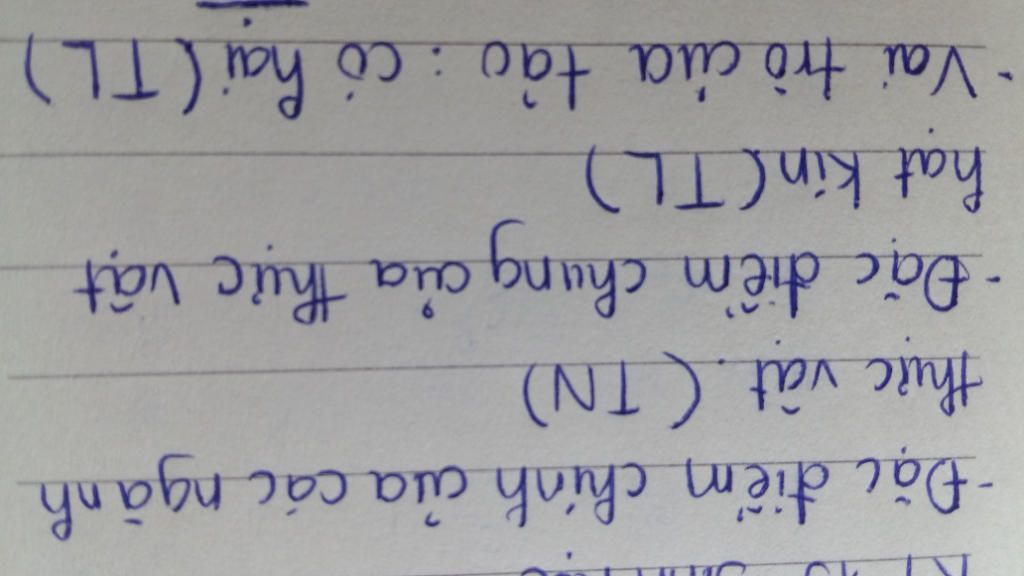 - Đặc điểm chính của các ngành
thực vật. (TN)
- Đặc điểm chung của thực vật
hạt kín (TL)
- Vai trò của tảo : có hại (TL)